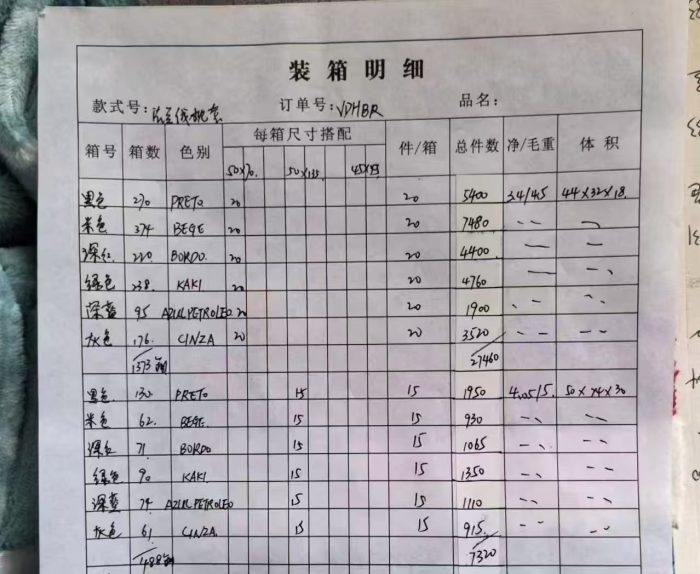 装箱明细
款式号: 订单号: VDHBR 品名:
箱号 箱数 色别 每箱尺寸搭配 件/箱 总件数 净/毛重 体积
50×70. 50×135 45×
黑色 270 PRETO 20 20 5400 3.4/4.5 44×32×18.
米色 374 BEGE 20 20 7480 - - -
深红 220 BORDO. 20 20 4400 - -
绿色 238. KAKI 20 20 4760 - - -
深蓝 95 AZUL PETROLEO 20 20 1900 - - - -
灰色 176. CINZA 20 20 3520 - - - -
1373箱 27460
黑色 130 PRETO 15 15 1950 4.05/5. 50×74×30
米色 62. BEGE. 15 15 930 - - - -
深红 71 BORDO 15 15 1065 - - - -
绿色 90 KAKI 15 15 1350 - - - -
深蓝 74 AZUL PETROLEO 15 15 1110 - - - -
灰色 61 CINZA. 15 15 915. - - - -
488箱 7320